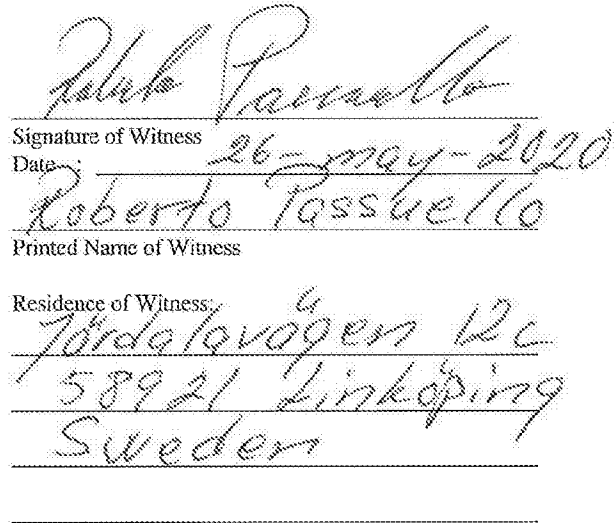 Roberto Passuello
Signature of Witness
Date : 26-may-2020
Roberto Passuello
Printed Name of Witness
Residence of Witness:
12c
58921 Linköping
Sweden